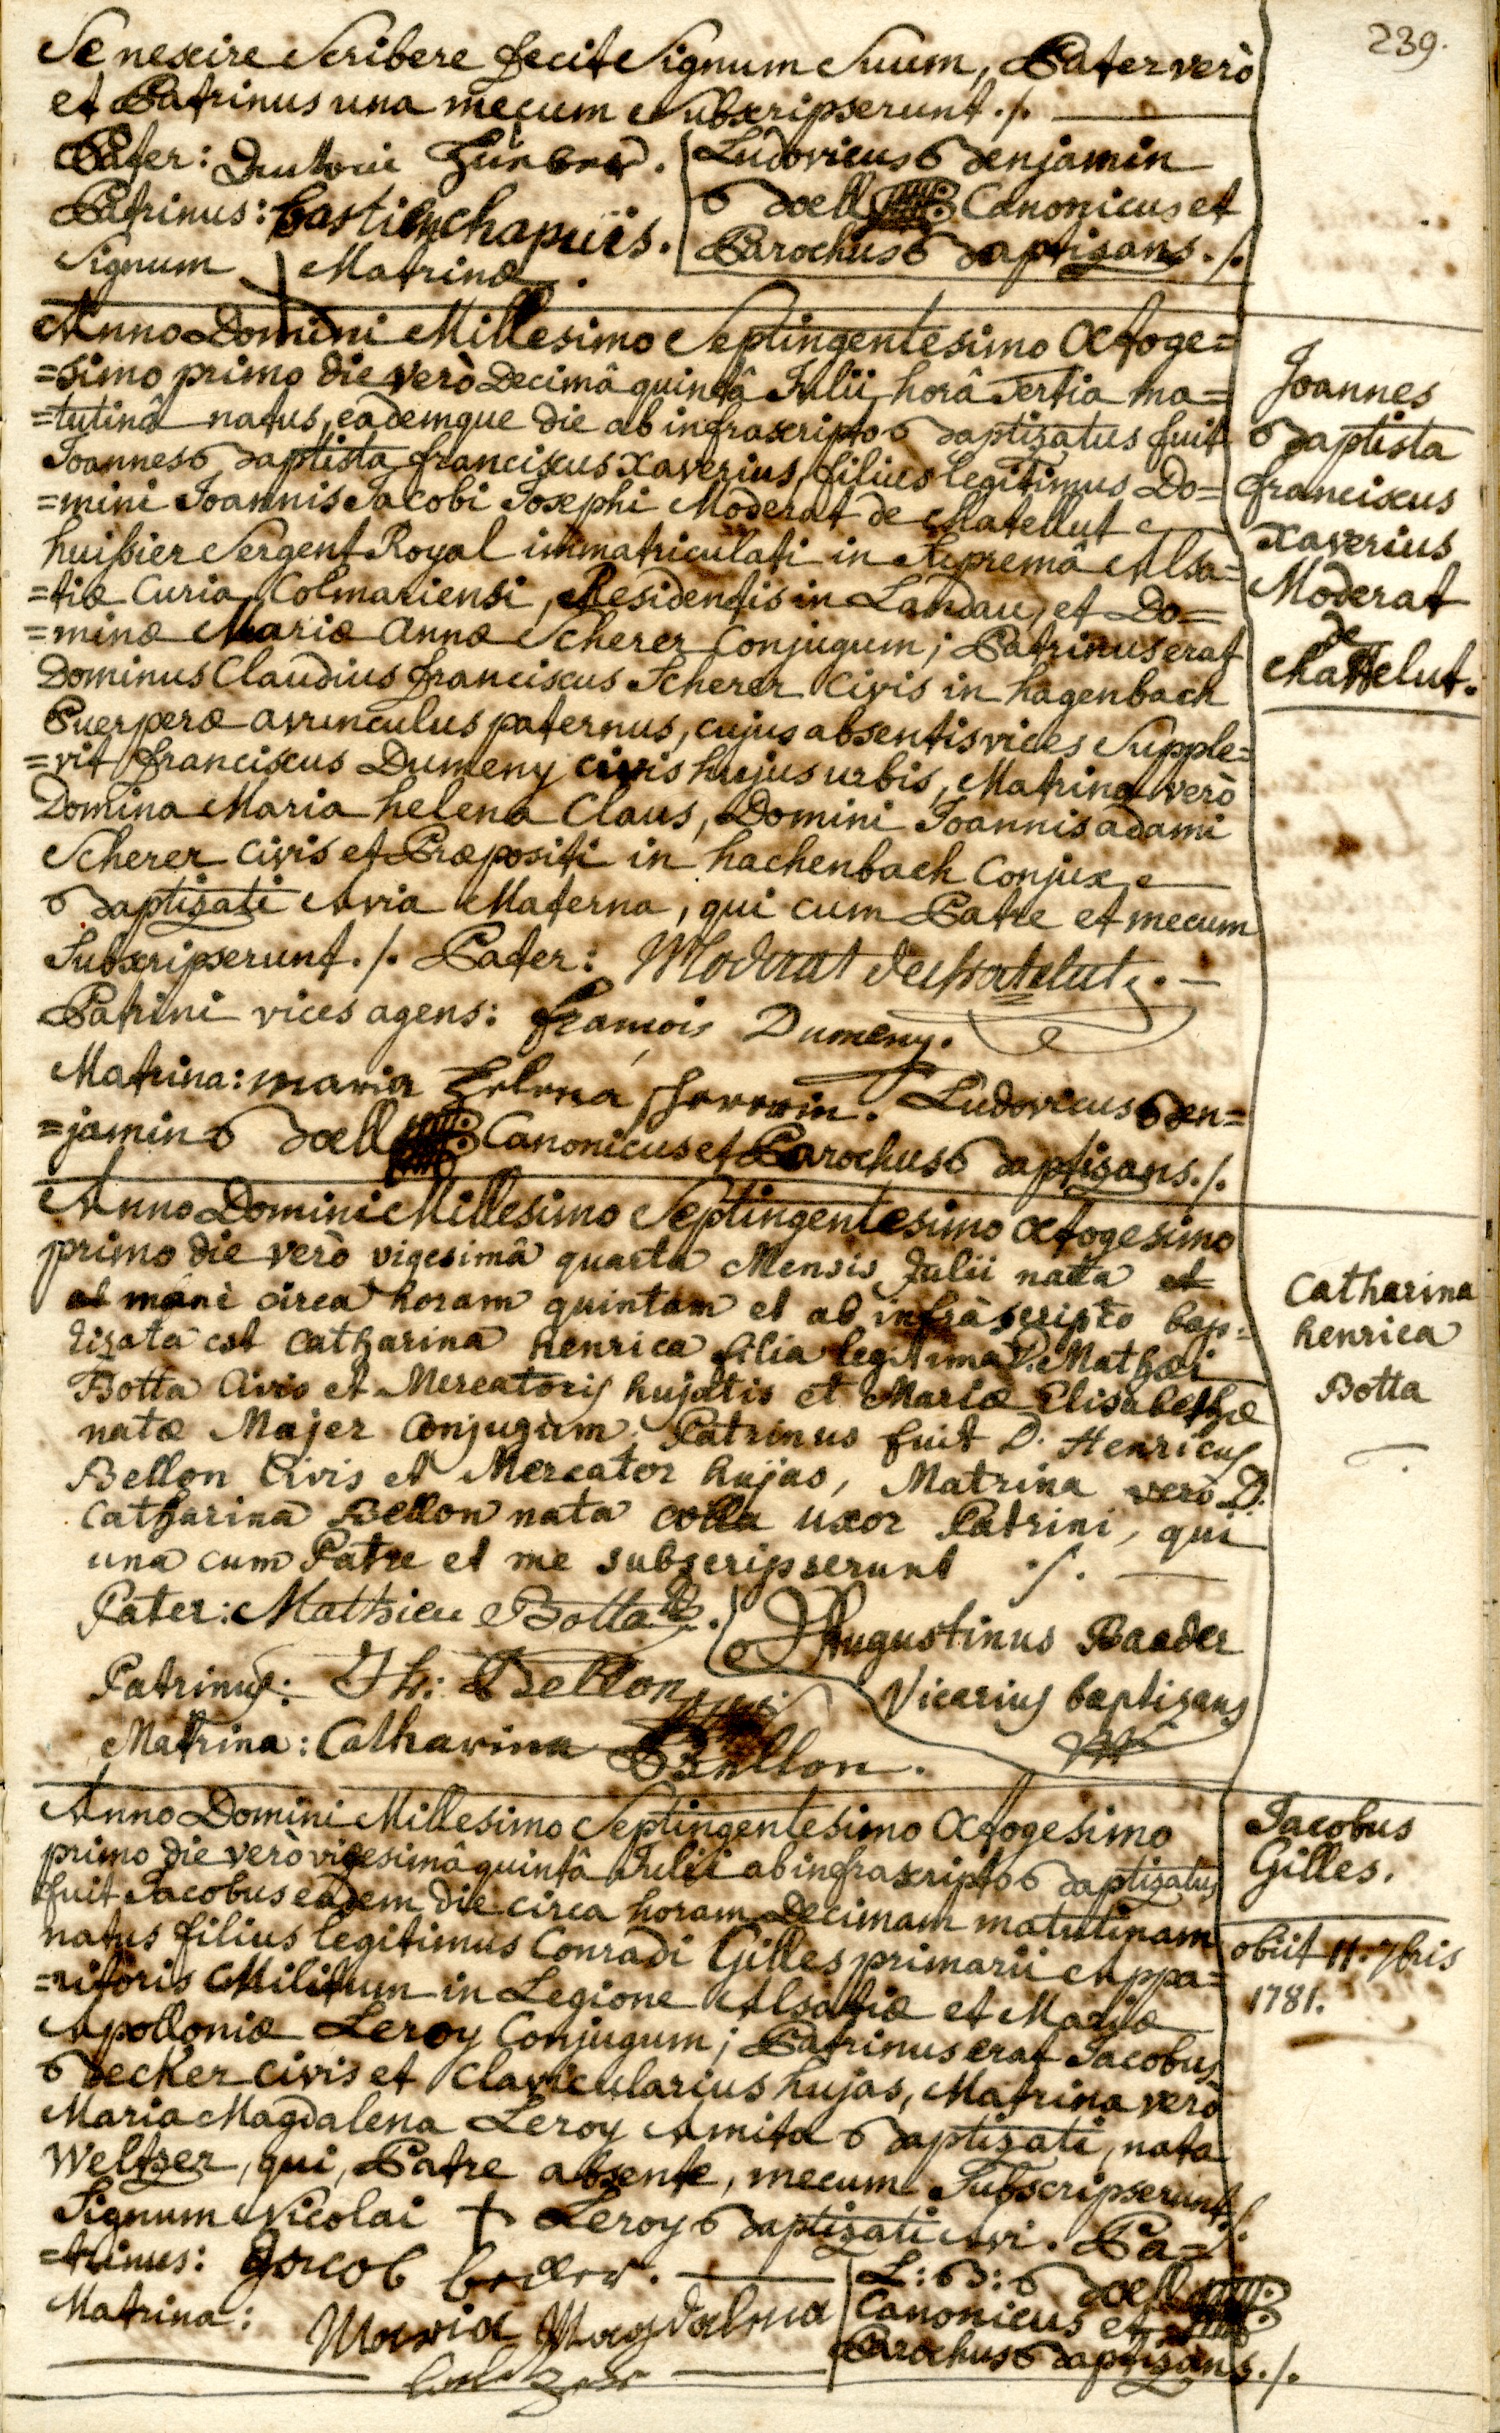 239.
Se nescire Scribere fecit Signum Suum, Pater verò
et Patrinus una mecum Subscripserunt ./.
Pater: Hürber.
Patrinus: bastien chapuïs.
Signum Matrinæ.
Ludovicus Benjamin
Boell Canonicus et
Parochus Baptizans ./.
Anno Domini Millesimo Septingentesimo Octoge=
=simo primo die verò Decimâ quintâ Julii, horâ Tertia ma=
=tutinâ natus, eademque die ab infrascripto Baptizatus fuit
Joannes Baptista franciscus Xaverius, filius legitimus Do=
=mini Joannis Jacobi Josephi Moderat de chatellut
huissier Sergent Royal immatriculati in Supremâ Alsa=
=tiæ Curia Colmariensi, Residentis in Landau, et Do=
=minæ Mariæ Annæ Scherer Conjugum; Patrinus erat
Dominus Claudius franciscus Scherer Civis in hagenbach
Puerperæ avunculus paternus, cujus absentis vices Supple=
=vit franciscus Dumeny civis hujus urbis, Matrina verò
Domina Maria helena Claus, Domini Joannis adami
Scherer Civis et Præpositi in hachenbach Conjux
Baptizati Avia Materna, qui cum Patre et mecum
Subscripserunt ./. Pater: Moderat dechatelut.
Patrini vices agens: françois Dumeny.
Matrina: maria Helena scherrerin. Ludovicus Ben=
=jamin Boell Canonicus et Parochus Baptizans ./.
Joannes
Baptista
franciscus
xaverius
Moderat
de
chattelut.
Anno Domini Millesimo Septingentesimo Octogesimo
primo die verò vigesimâ quarta Mensis Julii nata et
et mani circa horam quintam et ab infrà scripto bap=
tizata est Catharina henrica filia legitima D. Mathæi
Botta Civis et Mercatoris hujatis et Mariæ Elisabethæ
natæ Majer Conjugum. Patrinus fuit D. Henricus
Bellon Civis et Mercator hujas, Matrina verò D.
Catharina Bellon nata colla uxor Patrini, qui
una cum Patre et me subscripserunt ./.
Pater: Mathieu Botta.
Patrinus: Bellon
Matrina: Catharina Bellon.
Augustinus Baader
Vicarius baptizans
Catharina
henrica
Botta
Anno Domini Millesimo Septingentesimo Octogesimo
primo die verò vigesimâ quintâ Julii ab infrascripto Baptizatus
fuit Jacobus eadem die circa horam Decimam matutinam
natus filius legitimus Conradi Gilles primarii Appa=
=ritoris Militum in Legione Alsatiæ et Mariæ
Apolloniæ Leroy Conjugum; Patrinus erat Jacobus
Becker civis et Clavicularius hujas, Matrina verò
Maria Magdalena Leroy Amita Baptizati, nata
Weltzer, qui, Patre absente, mecum Subscripserunt ./.
Signum Nicolai + Leroy Baptizati Avi. Pa=
=trinus: Jacob becker.
Matrina: Maria Magdalena
L: B: Boell
Canonicus et
Parochus Baptizans ./.
Jacobus
Gilles.
obiit 11. 7bris
1781.